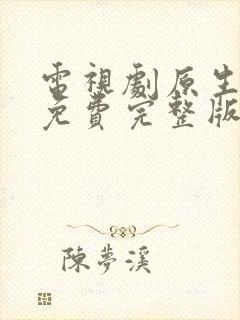 電視劇原生
免費完整版
陳夢溪